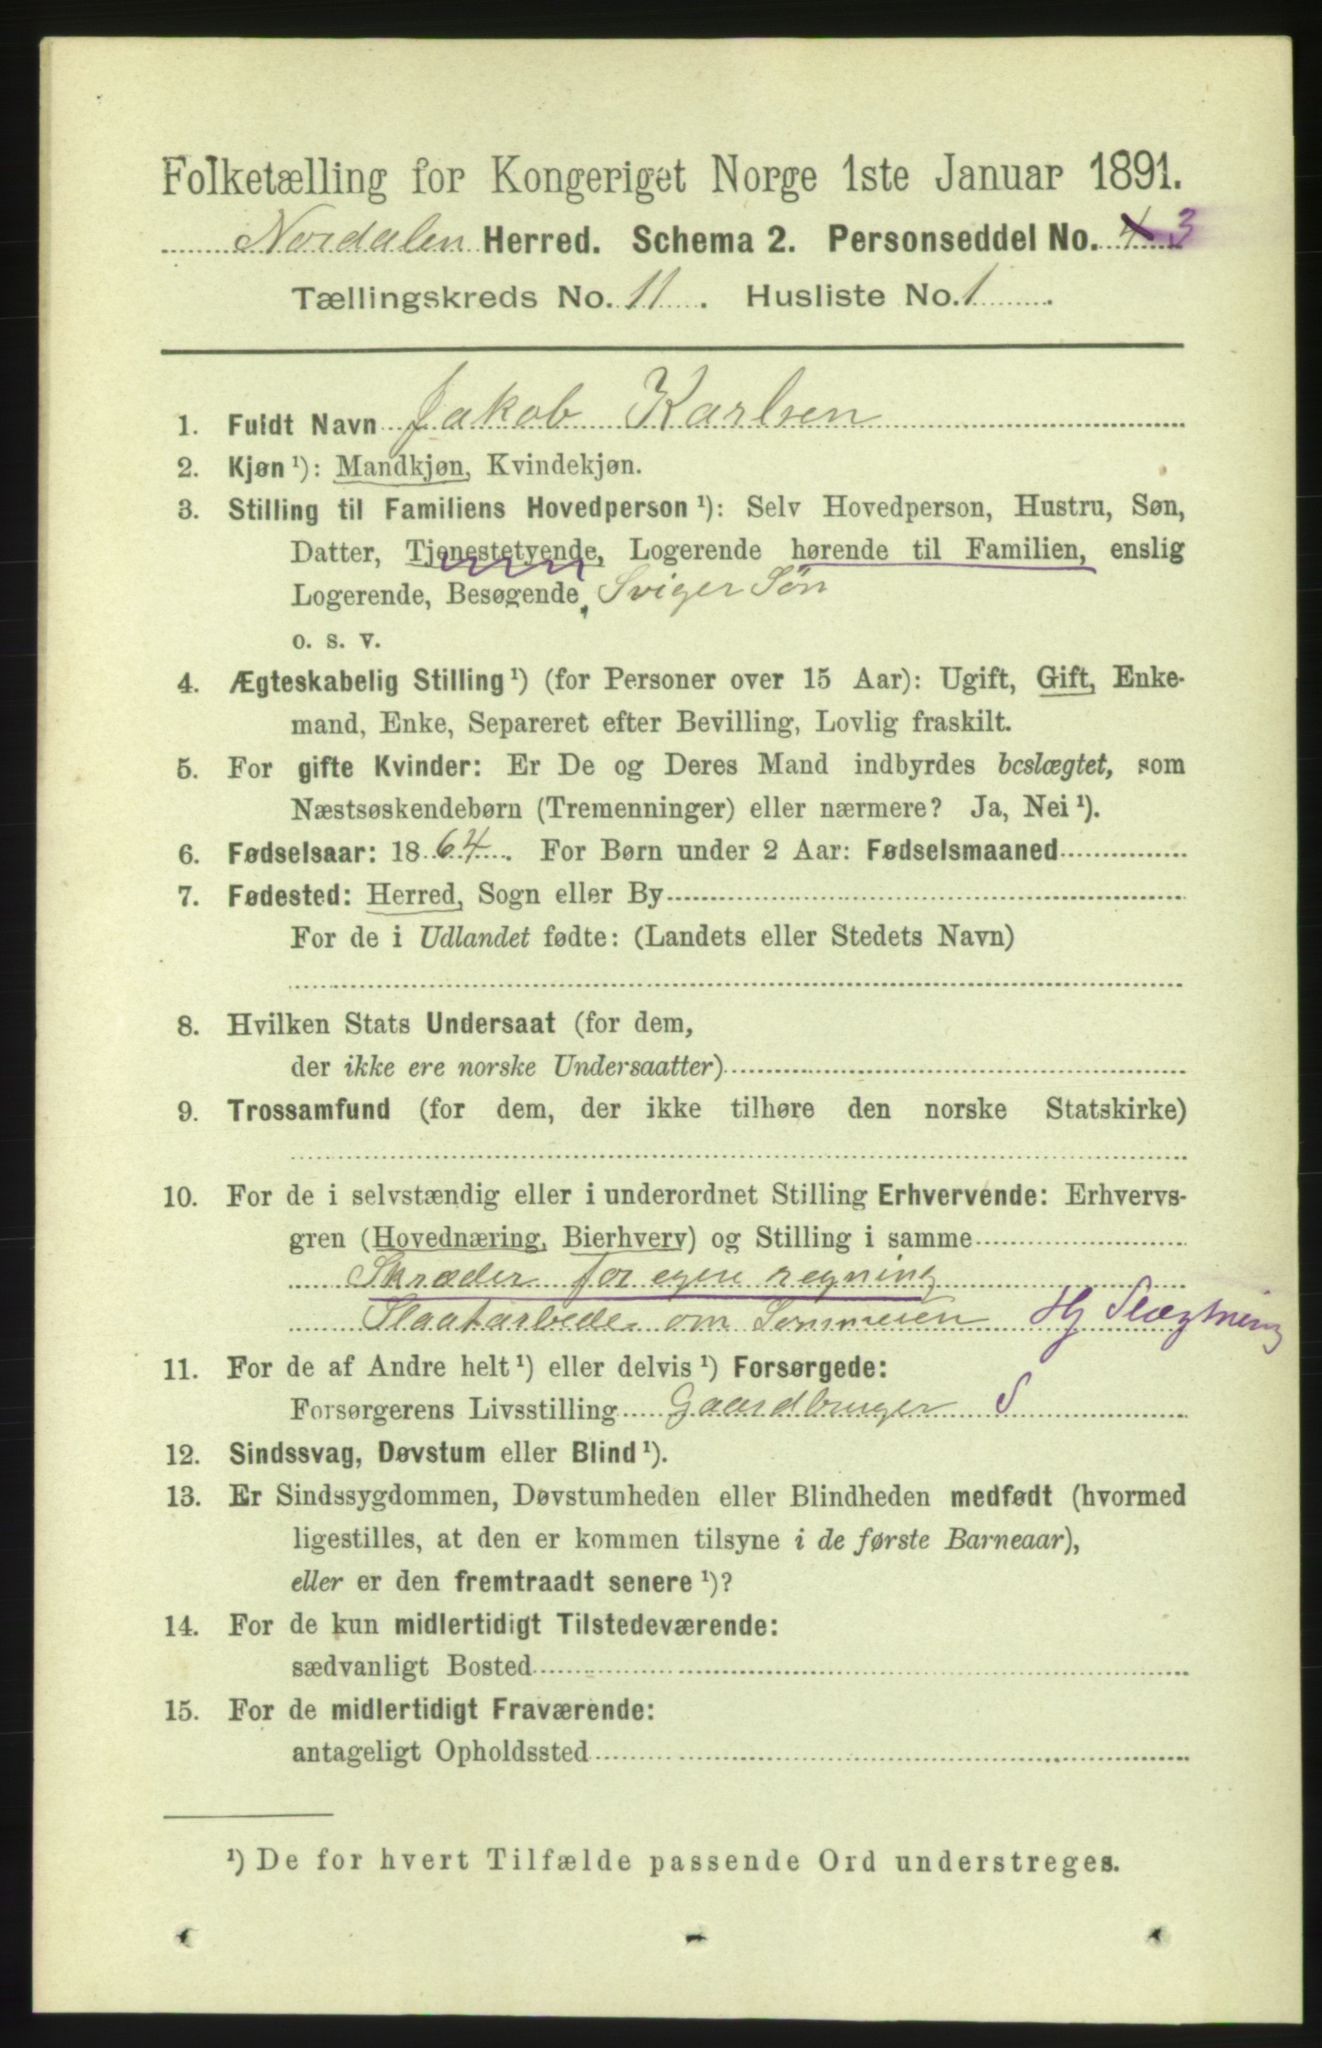 Folketælling for Kongeriget Norge 1ste Januar 1891.
Nordalen Herred. Schema 2. Personseddel No. 4 3
Tællingskreds No. 11. Husliste No. 1.
1. Fuldt Navn Jakob Karlsen
2. Kjøn ¹): Mandkjøn, Kvindekjøn.
3. Stilling til Familiens Hovedperson ¹): Selv Hovedperson, Hustru, Søn,
Datter, Tjenestetyende, Logerende hørende til Familien, enslig
Logerende, Besøgende, Sviger Søn
o. s. v.
4. Ægteskabelig Stilling ¹) (for Personer over 15 Aar): Ugift, Gift, Enke-
mand, Enke, Separeret efter Bevilling, Lovlig fraskilt.
5. For gifte Kvinder: Er De og Deres Mand indbyrdes beslægtet, som
Næstsøskendebørn (Tremenninger) eller nærmere? Ja, Nei ¹).
6. Fødselsaar: 1864. For Børn under 2 Aar: Fødselsmaaned
7. Fødested: Herred, Sogn eller By
For de i Udlandet fødte: (Landets eller Stedets Navn)
8. Hvilken Stats Undersaat (for dem,
der ikke ere norske Undersaatter)
9. Trossamfund (for dem, der ikke tilhøre den norske Statskirke)
10. For de i selvstændig eller i underordnet Stilling Erhvervende: Erhvervs-
gren (Hovednæring, Bierhverv) og Stilling i samme
Skræder for egen regning
Slaatarbede om Sommeren Hj Slægtning
11. For de af Andre helt ¹) eller delvis ¹) Forsørgede:
Forsørgerens Livsstilling Gaardbruger S
12. Sindssvag, Døvstum eller Blind ¹).
13. Er Sindssygdommen, Døvstumheden eller Blindheden medfødt (hvormed
ligestilles, at den er kommen tilsyne i de første Barneaar),
eller er den fremtraadt senere ¹)?
14. For de kun midlertidigt Tilstedeværende:
sædvanligt Bosted
15. For de midlertidigt Fraværende:
antageligt Opholdssted
¹) De for hvert Tilfælde passende Ord understreges.